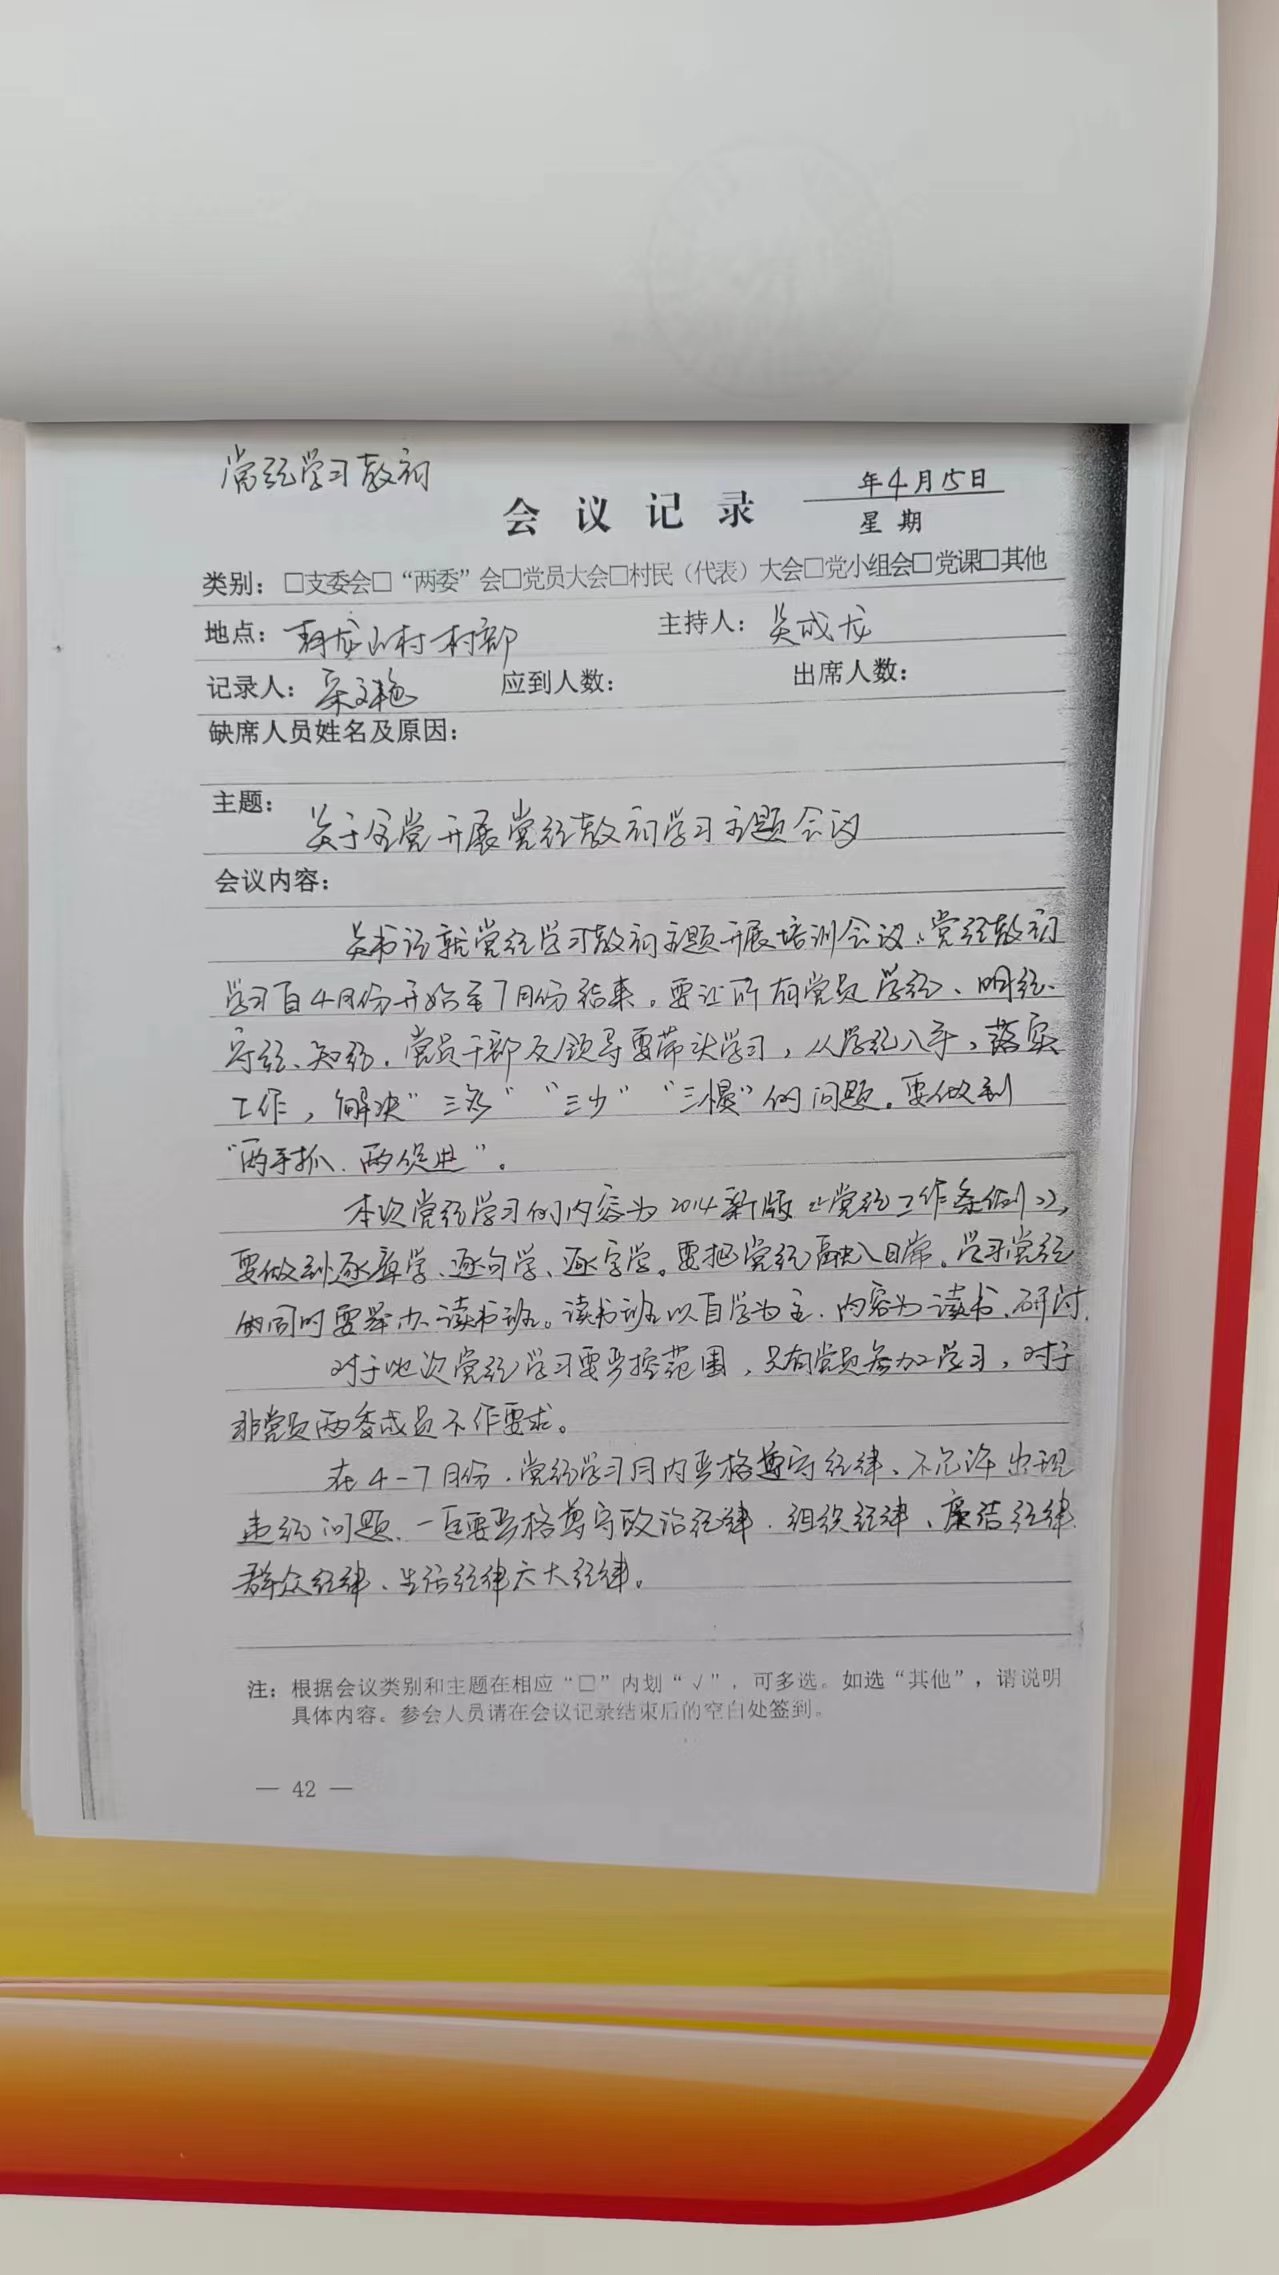 党纪学习教育
年4月15日
会议记录
星期
类别：□支委会□“两委”会□党员大会□村民（代表）大会□党小组会□党课□其他
地点：龙山村村部 主持人：吴成龙
记录人： 应到人数： 出席人数：
缺席人员姓名及原因：
主题：
关于全党开展党纪教育学习主题会议
会议内容：
吴书记就党纪学习教育主题开展培训会议。党纪教育
学习自4月份开始至7月份结束。要让所有党员学纪、明纪、
守纪、知纪。党员干部及领导要带头学习，从学纪入手，落实
工作，解决“三多”“三少”“三慢”的问题。要做到
“两手抓、两促进”。
本次党纪学习的内容为2014新版《党纪工作条例》，
要做到逐章学、逐句学、逐字学。要把党纪融入日常。学习党纪
的同时要举办读书班。读书班以自学为主，内容为读书、研讨。
对于此次党纪学习要严控范围，只有党员参加学习，对于
非党员两委成员不作要求。
在4-7月份，党纪学习月内严格遵守纪律、不允许出现
违纪问题，一定要严格遵守政治纪律、组织纪律、廉洁纪律、
群众纪律、生活纪律六大纪律。
注：根据会议类别和主题在相应“□”内划“√”，可多选。如选“其他”，请说明
具体内容。参会人员请在会议记录结束后的空白处签到。
— 42 —